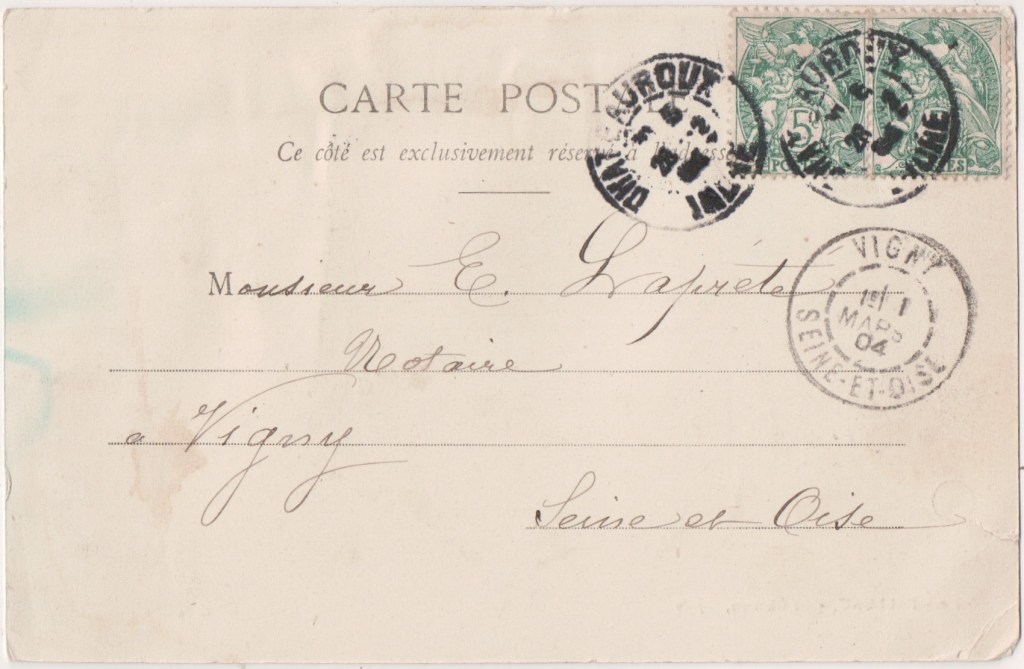 CARTE POSTALE
Ce côté est exclusivement réservé à l'adresse
CHATEAUROUX
INDRE
CHATEAUROUX
INDRE
5
POSTES
VIGNY
1
MARS
04
SEINE-ET-OISE
Monsieur E. Lapréte
Notaire
a Vigny
Seine et Oise